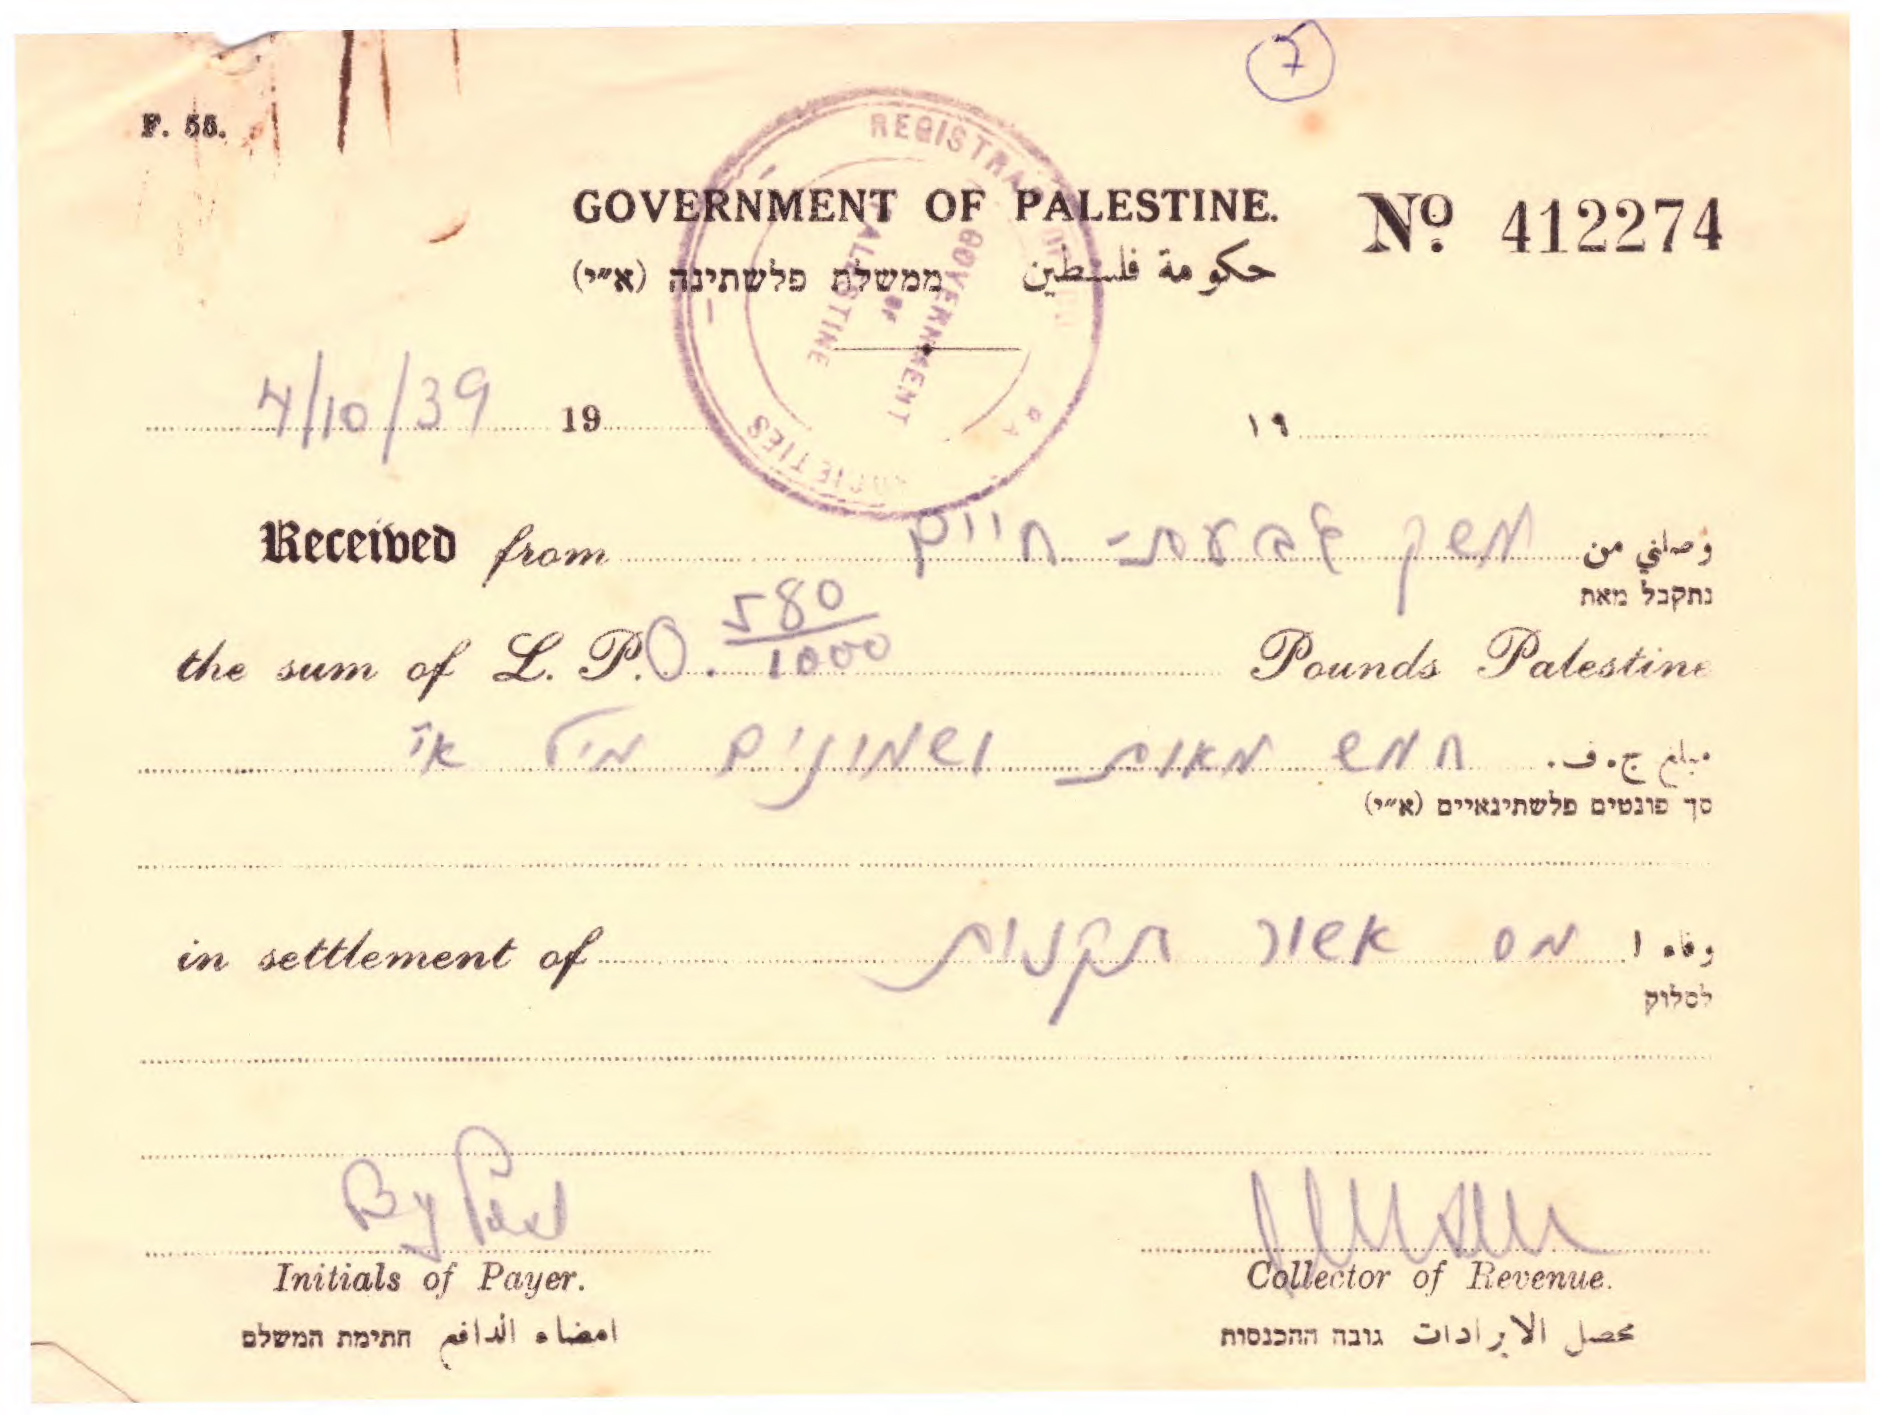 7
F. 55.
REGISTRAR OF SOCIETIES
GOVERNMENT OF PALESTINE
GOVERNMENT OF PALESTINE. No. 412274
حكومة فلسطين ממשלת פלשתינה (א״י)
4/10/39 19 ١٩
Received from משק גבעת-חיים وصلني من
נתקבל מאת
the sum of L. P. 0. 580/1000 Pounds Palestine
مبلغ ج. ف. חמש מאות ושמונים מיל א״י
סך פונטים פלשתינאיים (א״י)
in settlement of מס אשור תקנות وفاء ا
לסלוק
By Post
Initials of Payer. Collector of Revenue.
امضاء الدافع חתימת המשלם محصل الايرادات גובה ההכנסות